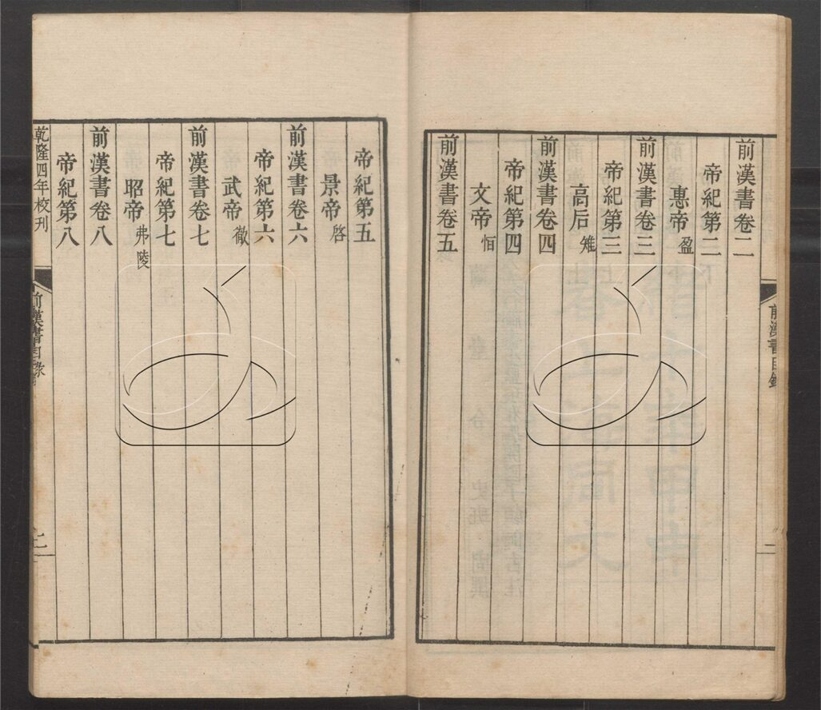 前漢書卷二
帝紀第二
惠帝盈
前漢書卷三
帝紀第三
高后雉
前漢書卷四
帝紀第四
文帝恒
前漢書卷五
帝紀第五
景帝啓
前漢書卷六
帝紀第六
武帝徹
前漢書卷七
帝紀第七
昭帝弗陵
前漢書卷八
帝紀第八
乾隆四年校刊
前漢書目錄
二